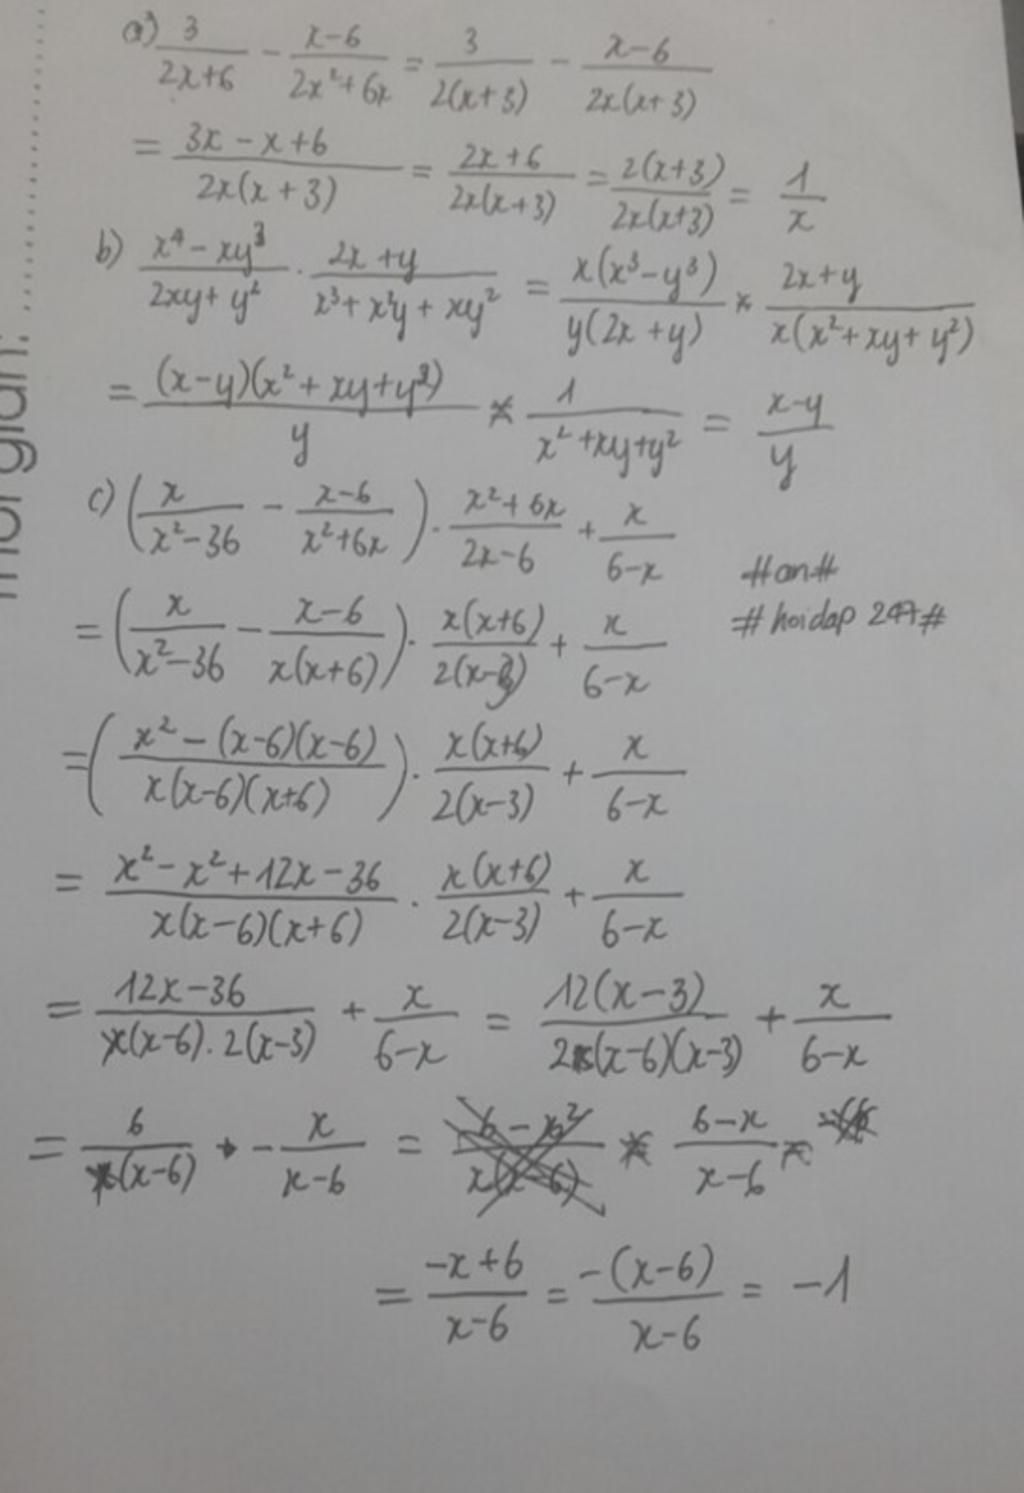 a) 3/(2x+6) - (x-6)/(2x²+6x) = 3/(2(x+3)) - (x-6)/(2x(x+3))
= (3x-x+6)/(2x(x+3)) = (2x+6)/(2x(x+3)) = (2(x+3))/(2x(x+3)) = 1/x
b) (x⁴-xy³)/(2xy+y²) . (2x+y)/(x³+x²y+xy²) = (x(x³-y³))/(y(2x+y)) * (2x+y)/(x(x²+xy+y²))
= ((x-y)(x²+xy+y²))/y * 1/(x²+xy+y²) = (x-y)/y
c) (x/(x²-36) - (x-6)/(x²+6x)) . (x²+6x)/(2x-6) + x/(6-x)
#an#
= (x/(x²-36) - (x-6)/(x(x+6))) . (x(x+6))/(2(x-3)) + x/(6-x)
#hoidap 247#
= ((x²-(x-6)(x-6))/(x(x-6)(x+6))) . (x(x+6))/(2(x-3)) + x/(6-x)
= (x²-x²+12x-36)/(x(x-6)(x+6)) . (x(x+6))/(2(x-3)) + x/(6-x)
= (12x-36)/((x-6).2(x-3)) + x/(6-x) = (12(x-3))/(2(x-6)(x-3)) + x/(6-x)
= 6/(x-6) - x/(x-6) = (6-x)/(x-6)
= (-x+6)/(x-6) = (-(x-6))/(x-6) = -1